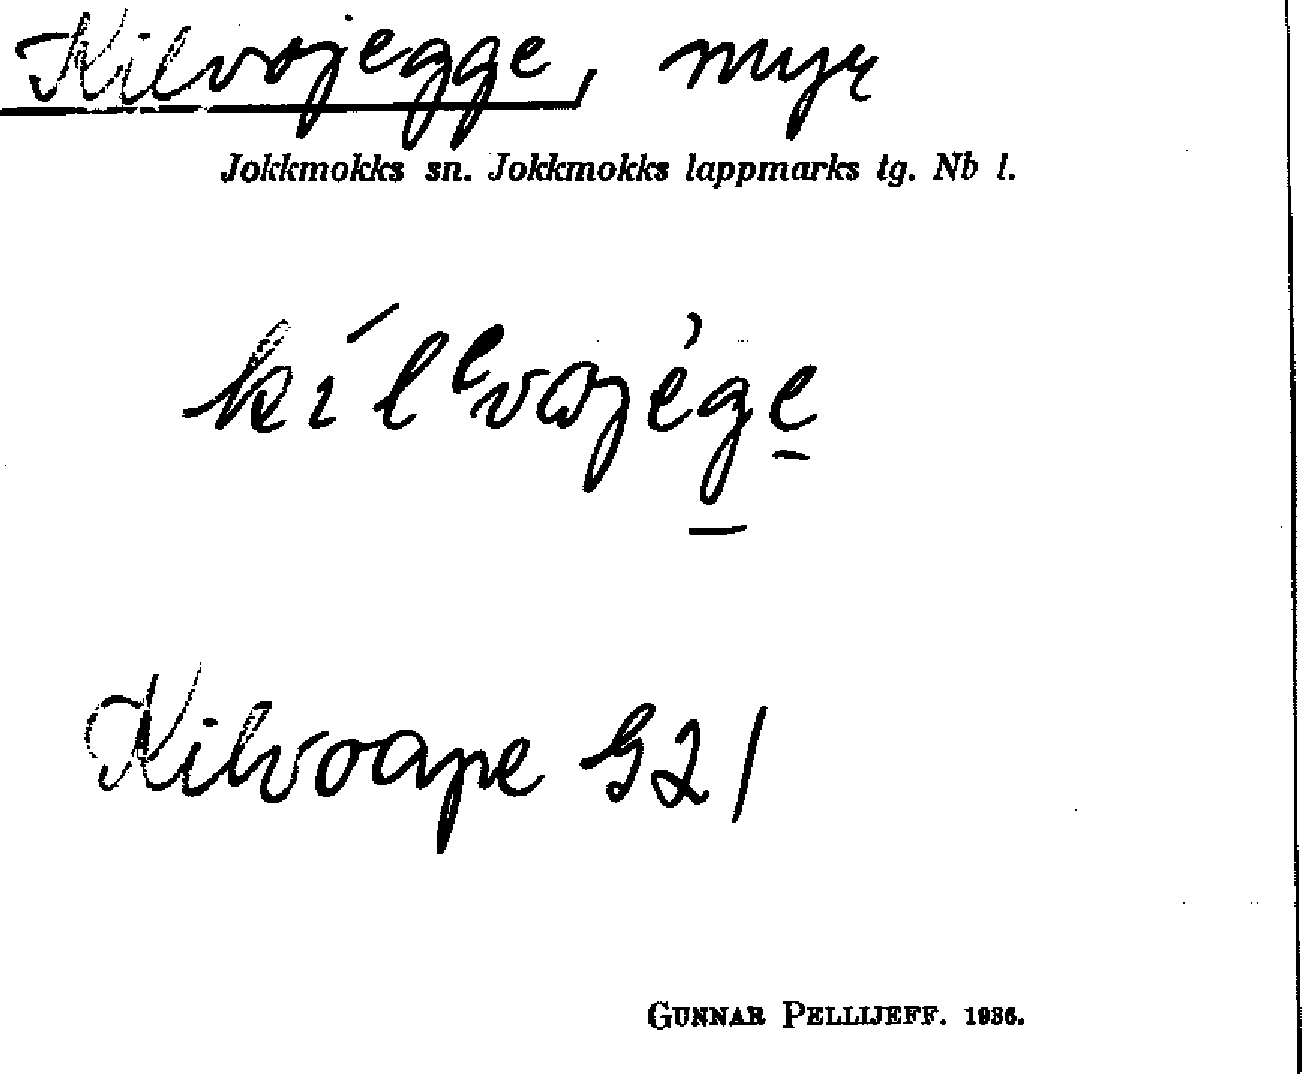 Kilvojegge, myr
Jokkmokks sn. Jokkmokks lappmarks tg. Nb l.
kı´lᵉvajég̲e̲
Kilvoape S21
GUNNAR PELLIJEFF. 1936.